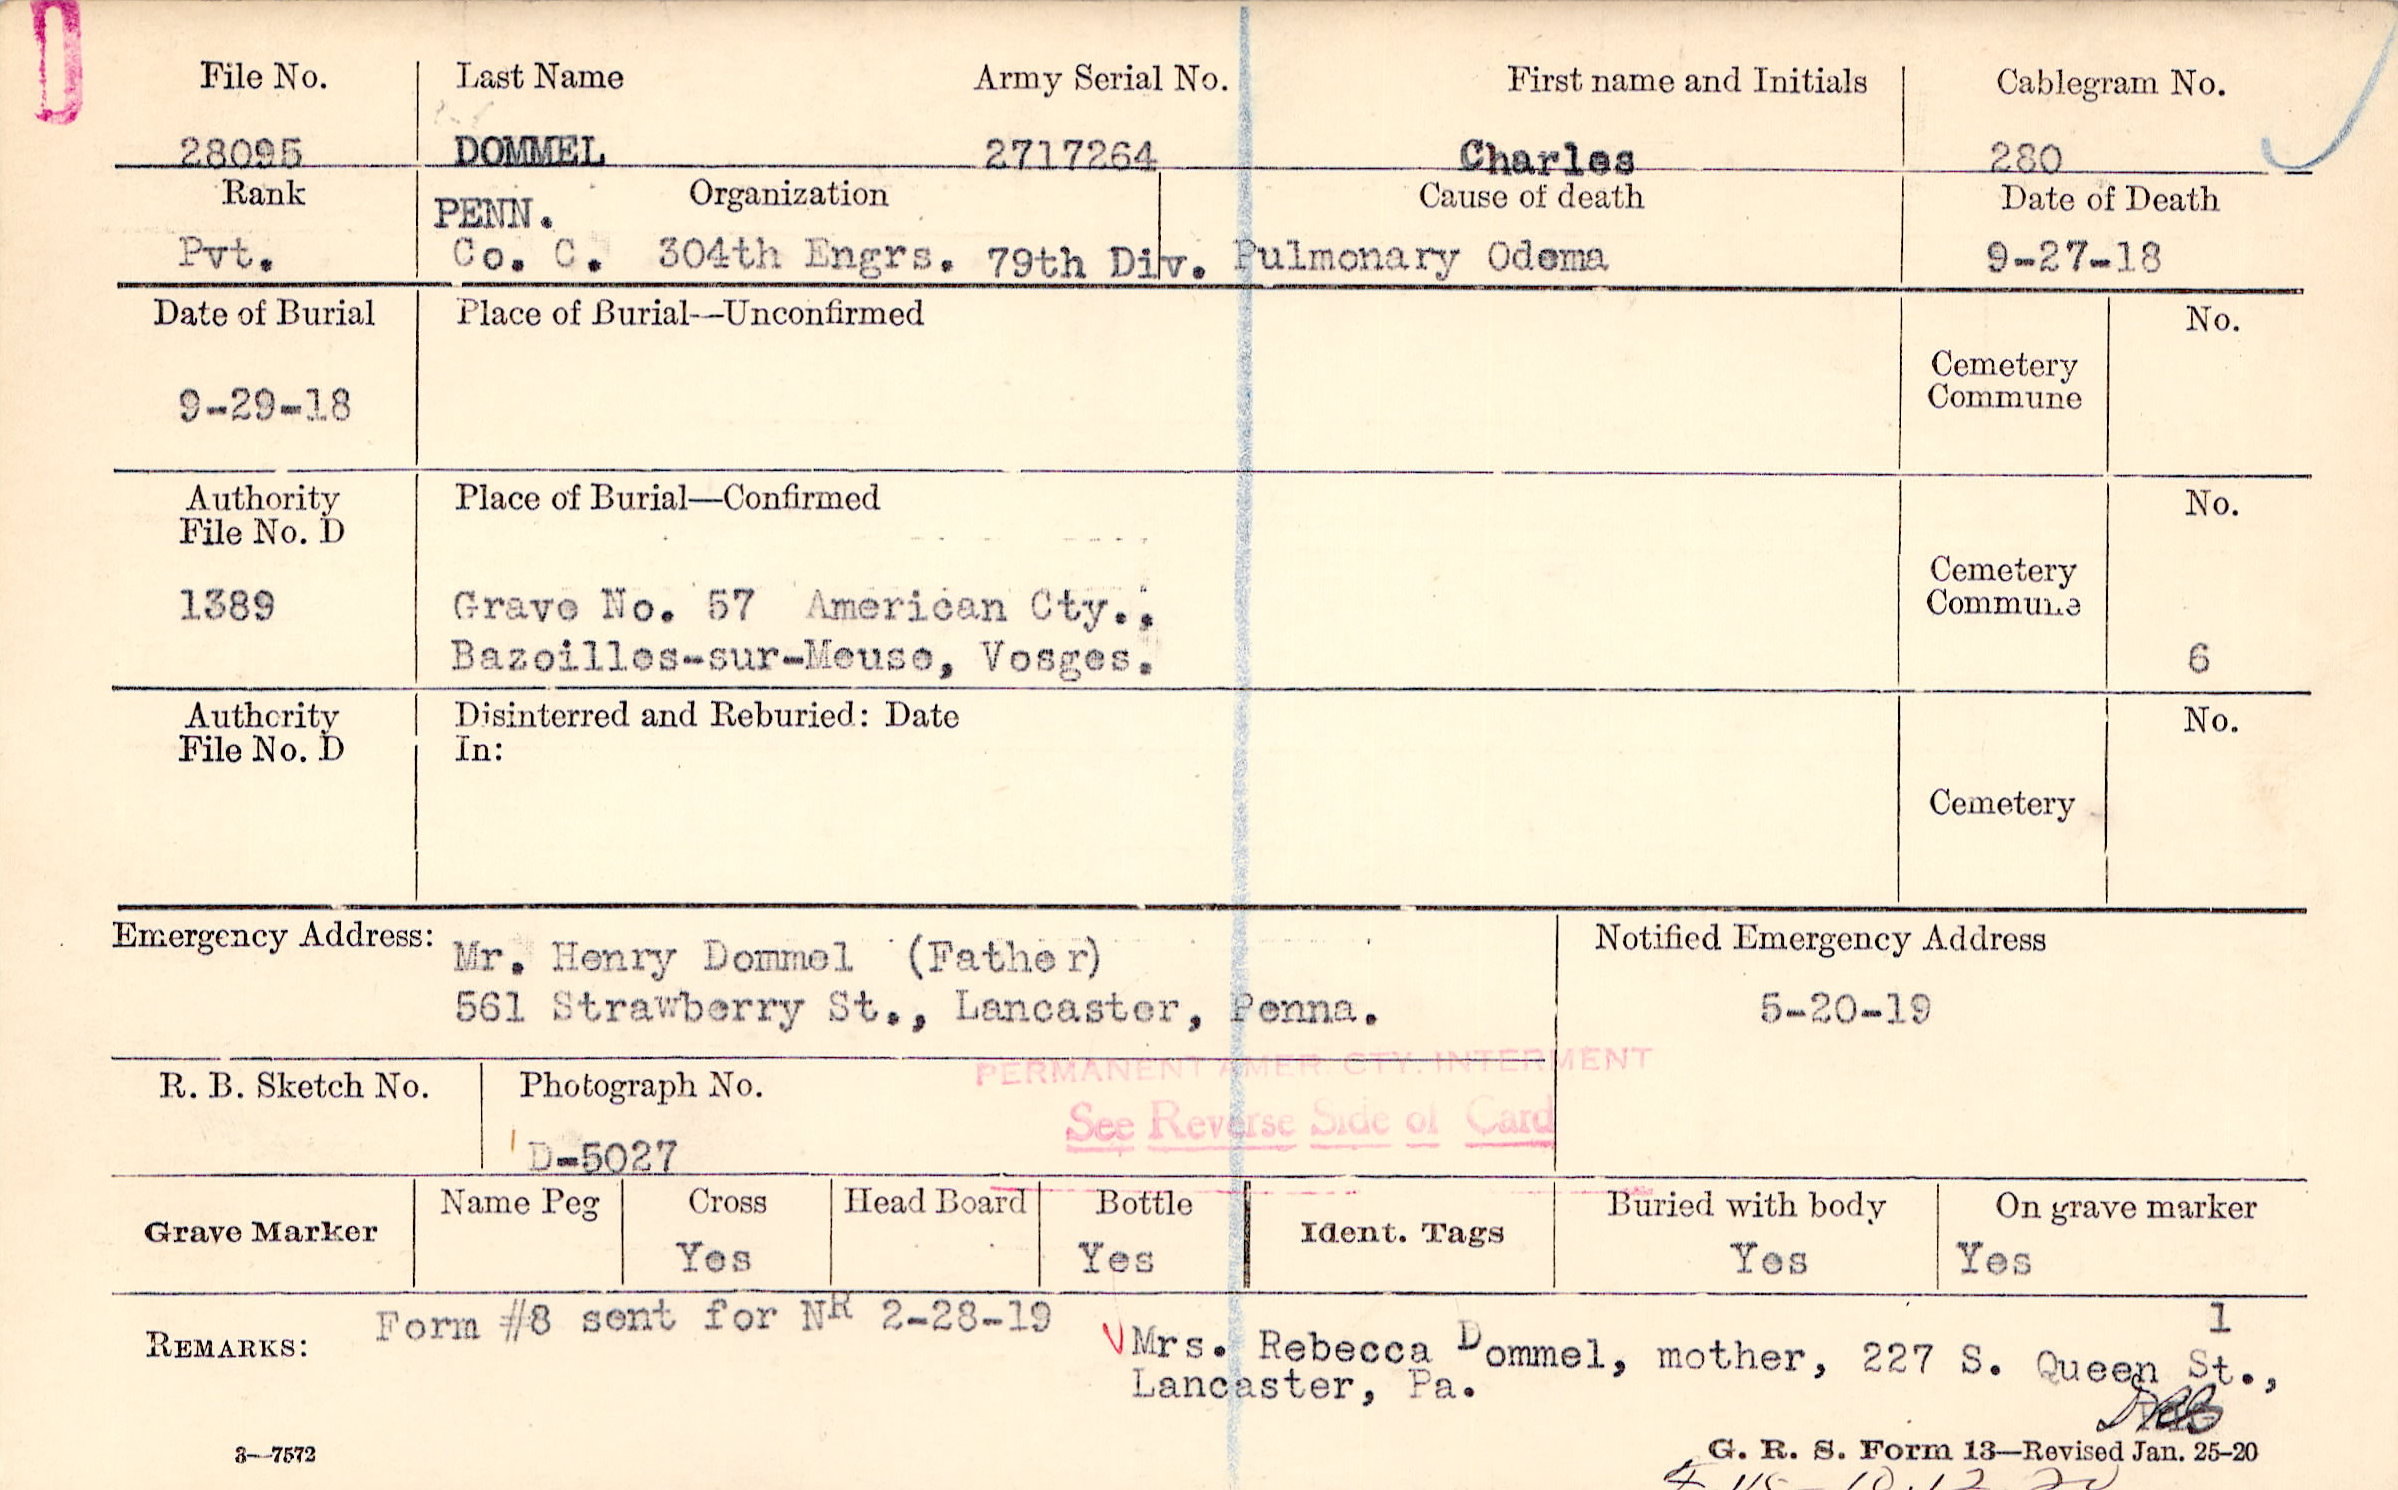 D
File No. Last Name Army Serial No. First name and Initials Cablegram No.
28095 DOMMEL 2717264 Charles 280
Rank Organization Cause of death Date of Death
PENN.
Pvt. Co. C. 304th Engrs. 79th Div. Pulmonary Odema 9-27-18
Date of Burial Place of Burial—Unconfirmed No.
Cemetery
Commune
9-29-18
Authority Place of Burial—Confirmed No.
File No. D
Cemetery
Commune
1389 Grave No. 57 American Cty.,
Bazoilles-sur-Meuse, Vosges. 6
Authority Disinterred and Reburied: Date No.
File No. D In:
Cemetery
Emergency Address: Mr. Henry Dommel (Father) Notified Emergency Address
561 Strawberry St., Lancaster, Penna. 5-20-19
PERMANENT AMER. CTY. INTERMENT
R. B. Sketch No. Photograph No.
See Reverse Side of Card
D-5027
Grave Marker Name Peg Cross Head Board Bottle Ident. Tags Buried with body On grave marker
Yes Yes Yes Yes
REMARKS: Form #8 sent for NR 2-28-19 1
Mrs. Rebecca Dommel, mother, 227 S. Queen St.,
Lancaster, Pa.
3—7572 G. R. S. Form 13—Revised Jan. 25-20